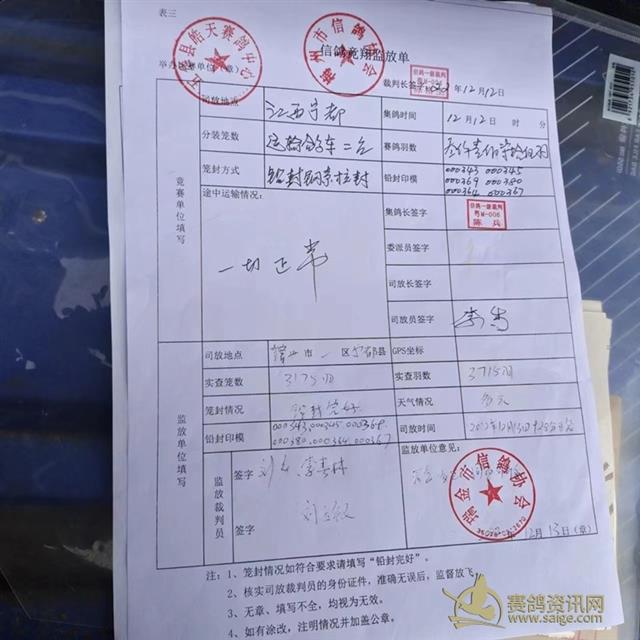 表三
信鸽竞翔监放单
举办比赛单位（章）
裁判长签字
年12月12日
司放地点 江西宁都 集鸽时间 12月12日 时 分
分装笼数 赛鸽羽数
笼封方式 铅封钢索拉封 铅封印模 000343 000345
000369 000380
000364 000367
竞赛单位填写
途中运输情况：
一切正常
集鸽长签字
信鸽一级裁判
粤M-006
陈兵
委派员签字
司放长签字
司放员签字
监放单位填写
司放地点 市 区宁都县 GPS坐标
实查笼数 3175羽 实查羽数 3715羽
笼封情况 铅封完好 天气情况 多云
铅封印模 000343.000345.000369
000380.000364.000367
司放时间
监放裁判员
签字
签字
监放单位意见：
瑞金市信鸽协会
12月13日（章）
注：1、笼封情况如符合要求请填写“铅封完好”。
2、核实司放裁判员的身份证件，准确无误后，监督放飞
3、无章、填写不全，均视为无效。
4、如有涂改，注明情况并加盖公章。
赛鸽资讯网
www.saige.com